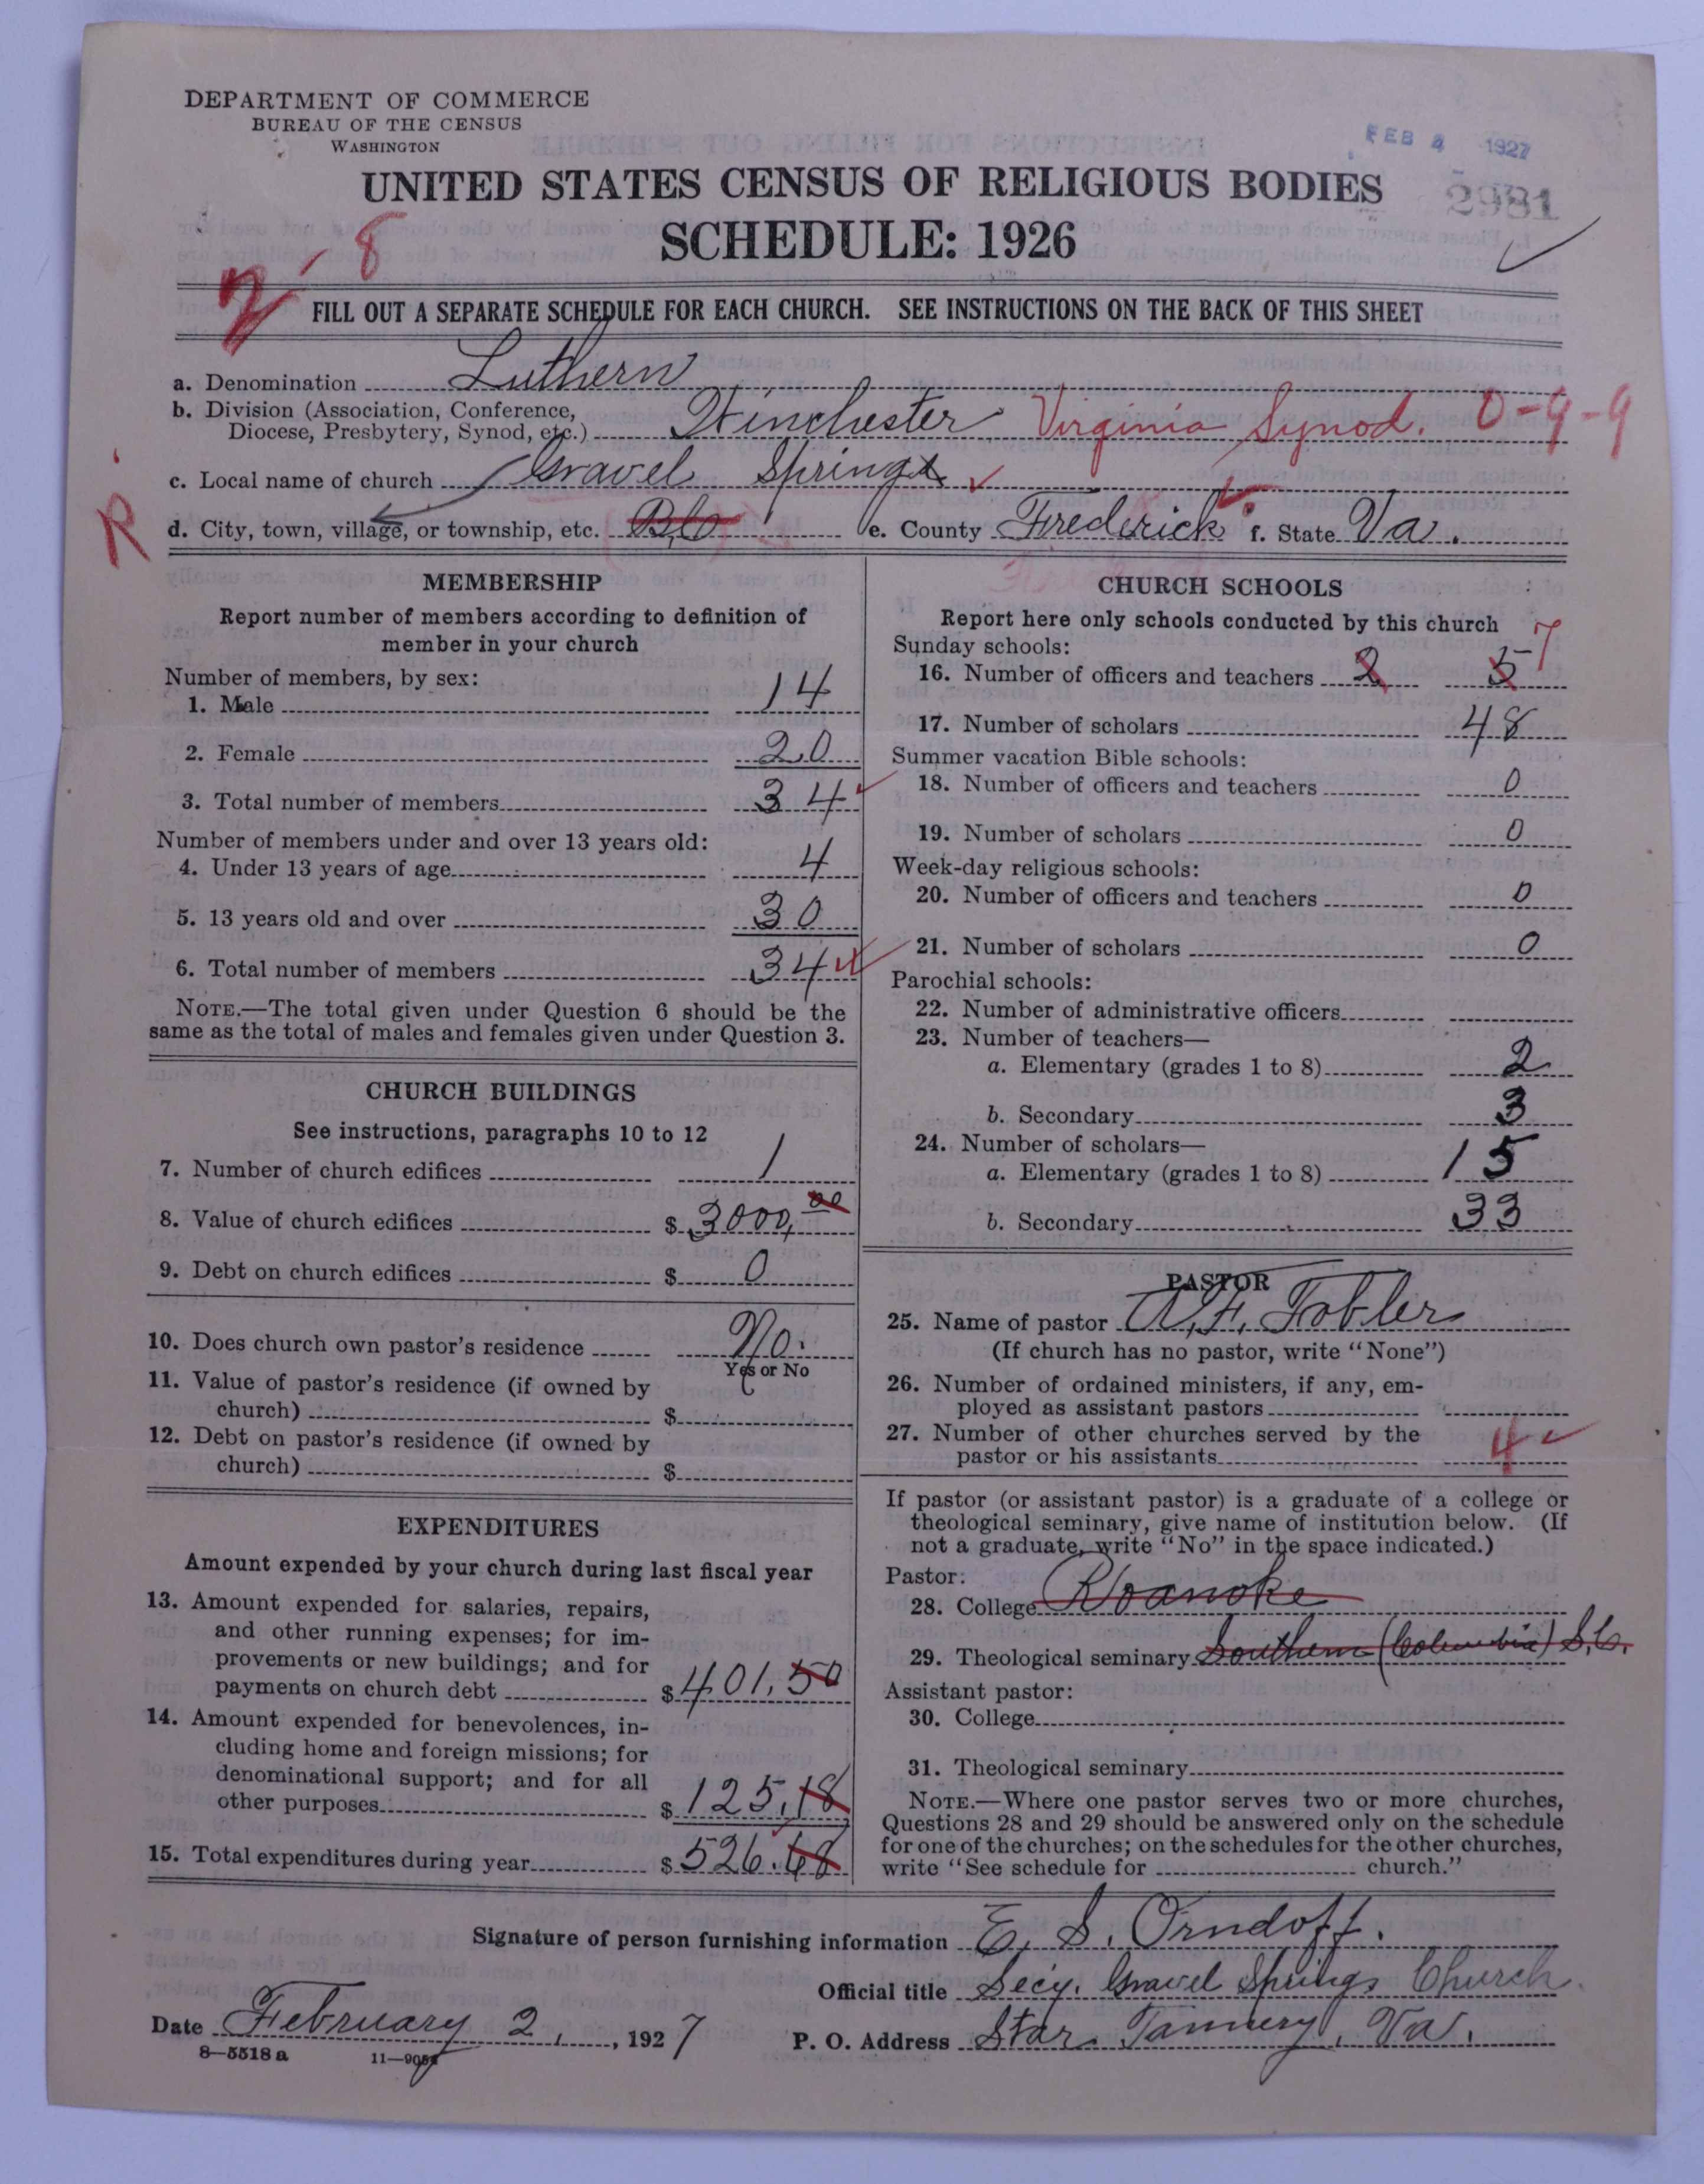 DEPARTMENT OF COMMERCE
BUREAU OF THE CENSUS
WASHINGTON
FEB 4 1927
UNITED STATES CENSUS OF RELIGIOUS BODIES
2981
SCHEDULE: 1926
2-8
FILL OUT A SEPARATE SCHEDULE FOR EACH CHURCH. SEE INSTRUCTIONS ON THE BACK OF THIS SHEET
a. Denomination Luthern
b. Division (Association, Conference,
Diocese, Presbytery, Synod, etc.) Winchester Virginia Synod. 0-9-9
c. Local name of church Gravel Springs
R
d. City, town, village, or township, etc. e. County Frederick f. State Va.
MEMBERSHIP
Report number of members according to definition of
member in your church
Number of members, by sex:
1. Male 14
2. Female 20
3. Total number of members 34
Number of members under and over 13 years old:
4. Under 13 years of age 4
5. 13 years old and over 30
6. Total number of members 34
NOTE.—The total given under Question 6 should be the
same as the total of males and females given under Question 3.
CHURCH BUILDINGS
See instructions, paragraphs 10 to 12
7. Number of church edifices 1
8. Value of church edifices $ 3000,00
9. Debt on church edifices $ 0
10. Does church own pastor's residence No.
Yes or No
11. Value of pastor's residence (if owned by
church) $
12. Debt on pastor's residence (if owned by
church) $
EXPENDITURES
Amount expended by your church during last fiscal year
13. Amount expended for salaries, repairs,
and other running expenses; for im-
provements or new buildings; and for
payments on church debt $ 401,50
14. Amount expended for benevolences, in-
cluding home and foreign missions; for
denominational support; and for all
other purposes $ 125,18
15. Total expenditures during year $ 526.68
CHURCH SCHOOLS
Report here only schools conducted by this church
Sunday schools: 7
16. Number of officers and teachers 2 5
17. Number of scholars 48
Summer vacation Bible schools:
18. Number of officers and teachers 0
19. Number of scholars 0
Week-day religious schools:
20. Number of officers and teachers 0
21. Number of scholars 0
Parochial schools:
22. Number of administrative officers
23. Number of teachers—
a. Elementary (grades 1 to 8) 2
b. Secondary 3
24. Number of scholars—
a. Elementary (grades 1 to 8) 15
b. Secondary 33
PASTOR
25. Name of pastor A,F, Tobler
(If church has no pastor, write "None")
26. Number of ordained ministers, if any, em-
ployed as assistant pastors
27. Number of other churches served by the
pastor or his assistants 4
If pastor (or assistant pastor) is a graduate of a college or
theological seminary, give name of institution below. (If
not a graduate, write "No" in the space indicated.)
Pastor:
28. College Roanoke
29. Theological seminary Southern (Columbia) S,C,
Assistant pastor:
30. College
31. Theological seminary
NOTE.—Where one pastor serves two or more churches,
Questions 28 and 29 should be answered only on the schedule
for one of the churches; on the schedules for the other churches,
write "See schedule for church."
Signature of person furnishing information E. S. Orndoff.
Official title Secy. Gravel Springs Church
Date February 2, , 1927 P. O. Address Star Tannery, Va.
8—5518a 11—9051